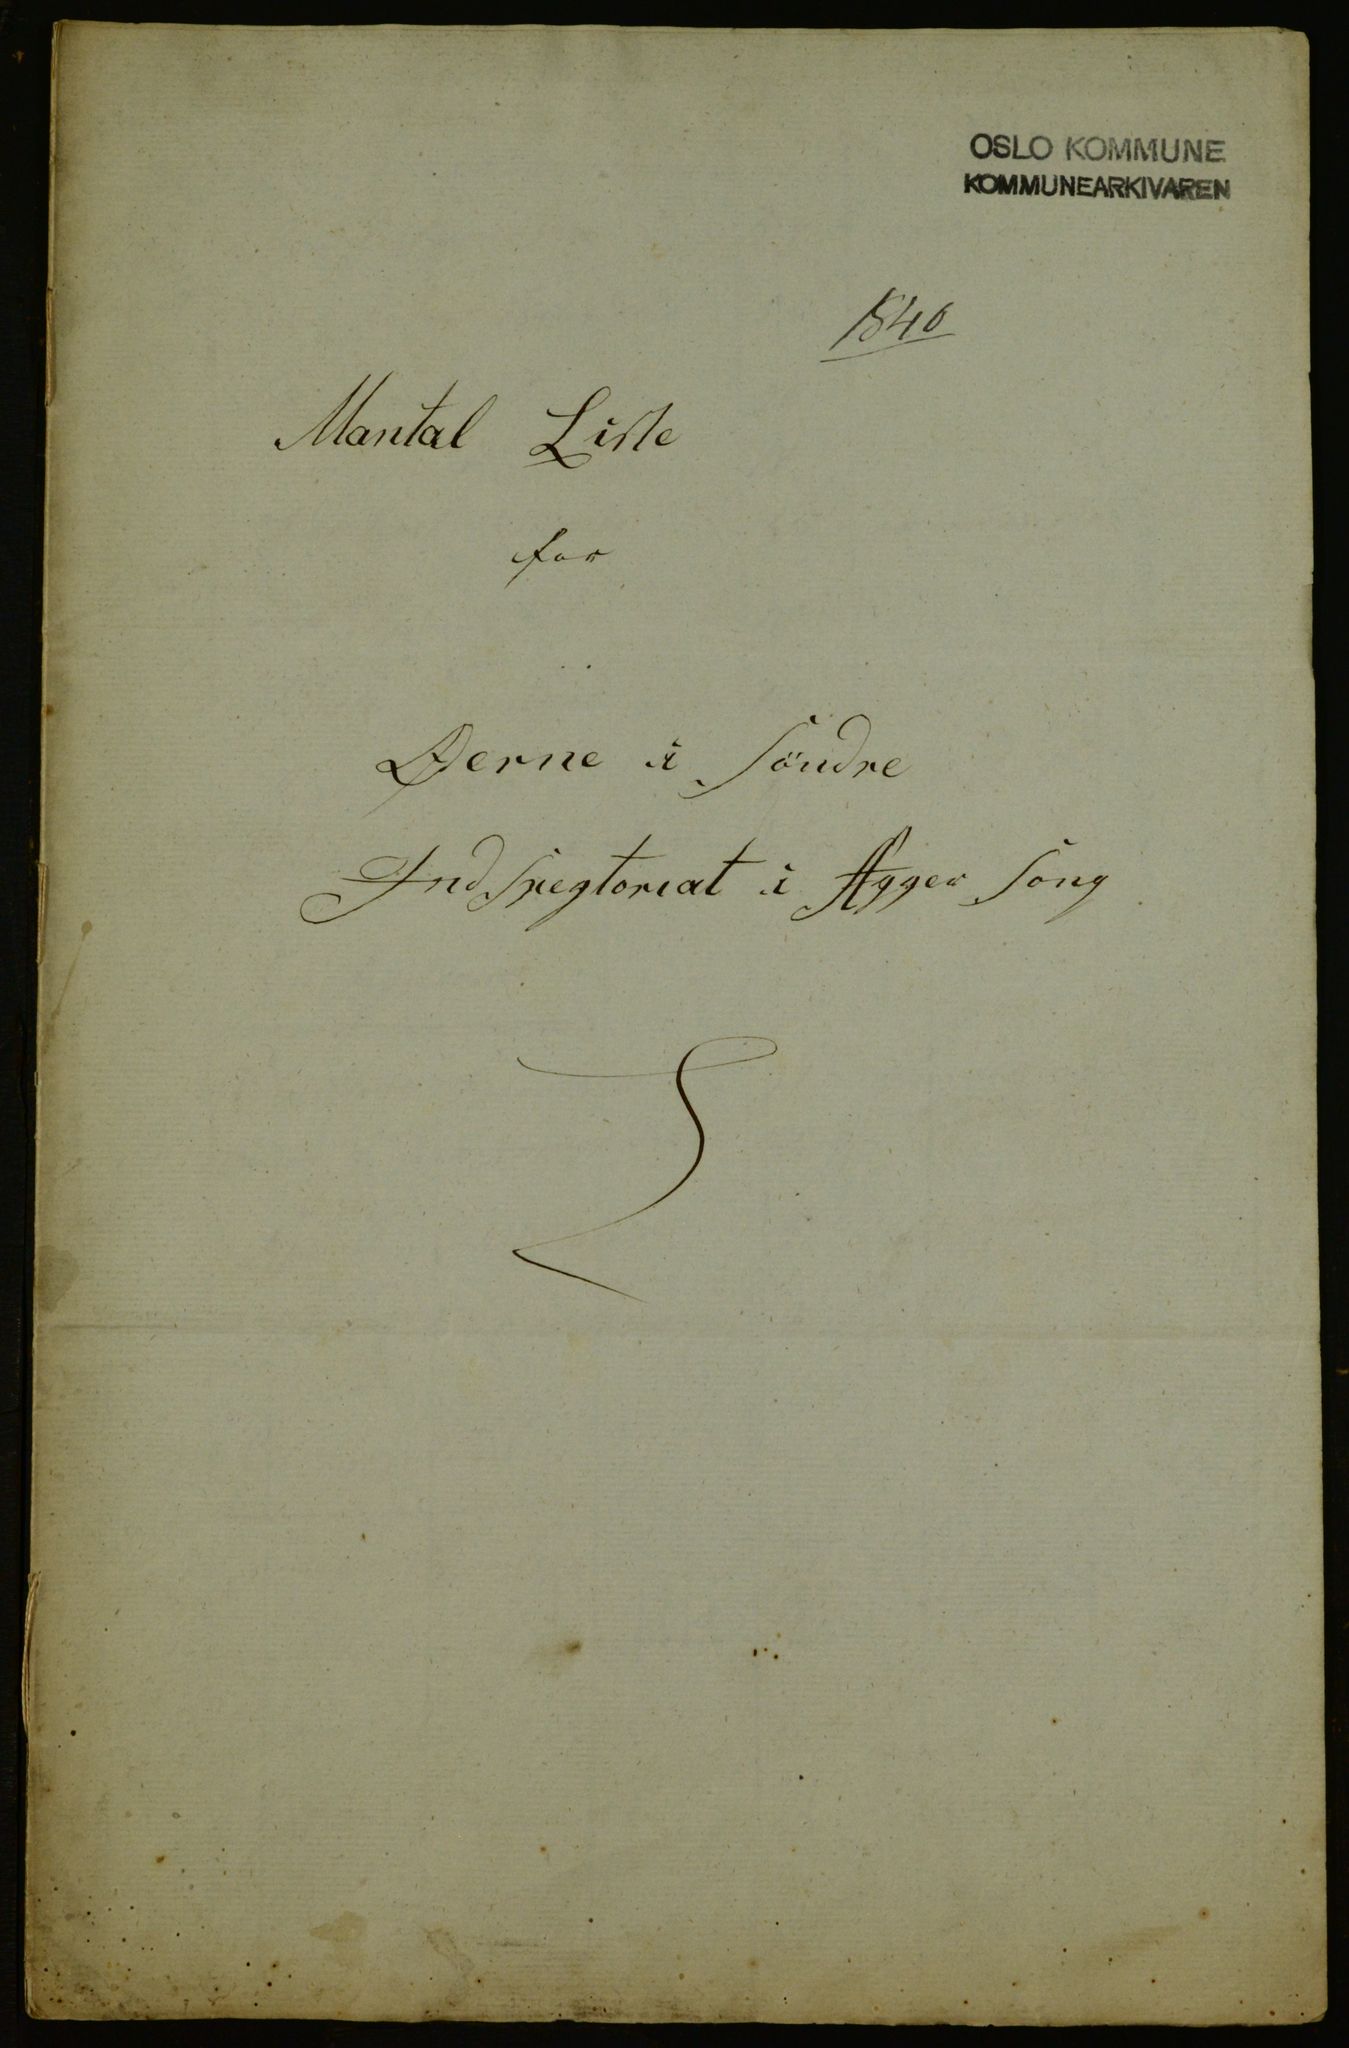 OSLO KOMMUNE
KOMMUNEARKIVAREN
1840
Mantal Liste
for
Øerne i Söndre
Indspegtoriat i Agger Song